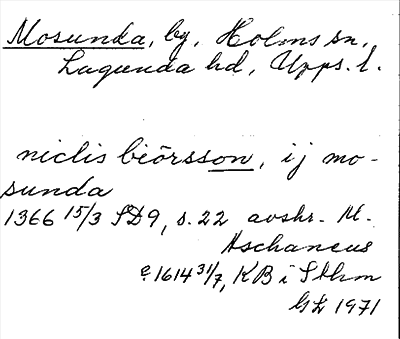 Mosunda, by, Holms sn,
Lagunda hd, Upps. l.
niclis beörsson, ij mo-
sunda
1366 15/3 SD9, s. 22 avskr. M.
Aschaneus
e. 1614 31/7, KB i Sthm
GL 1971